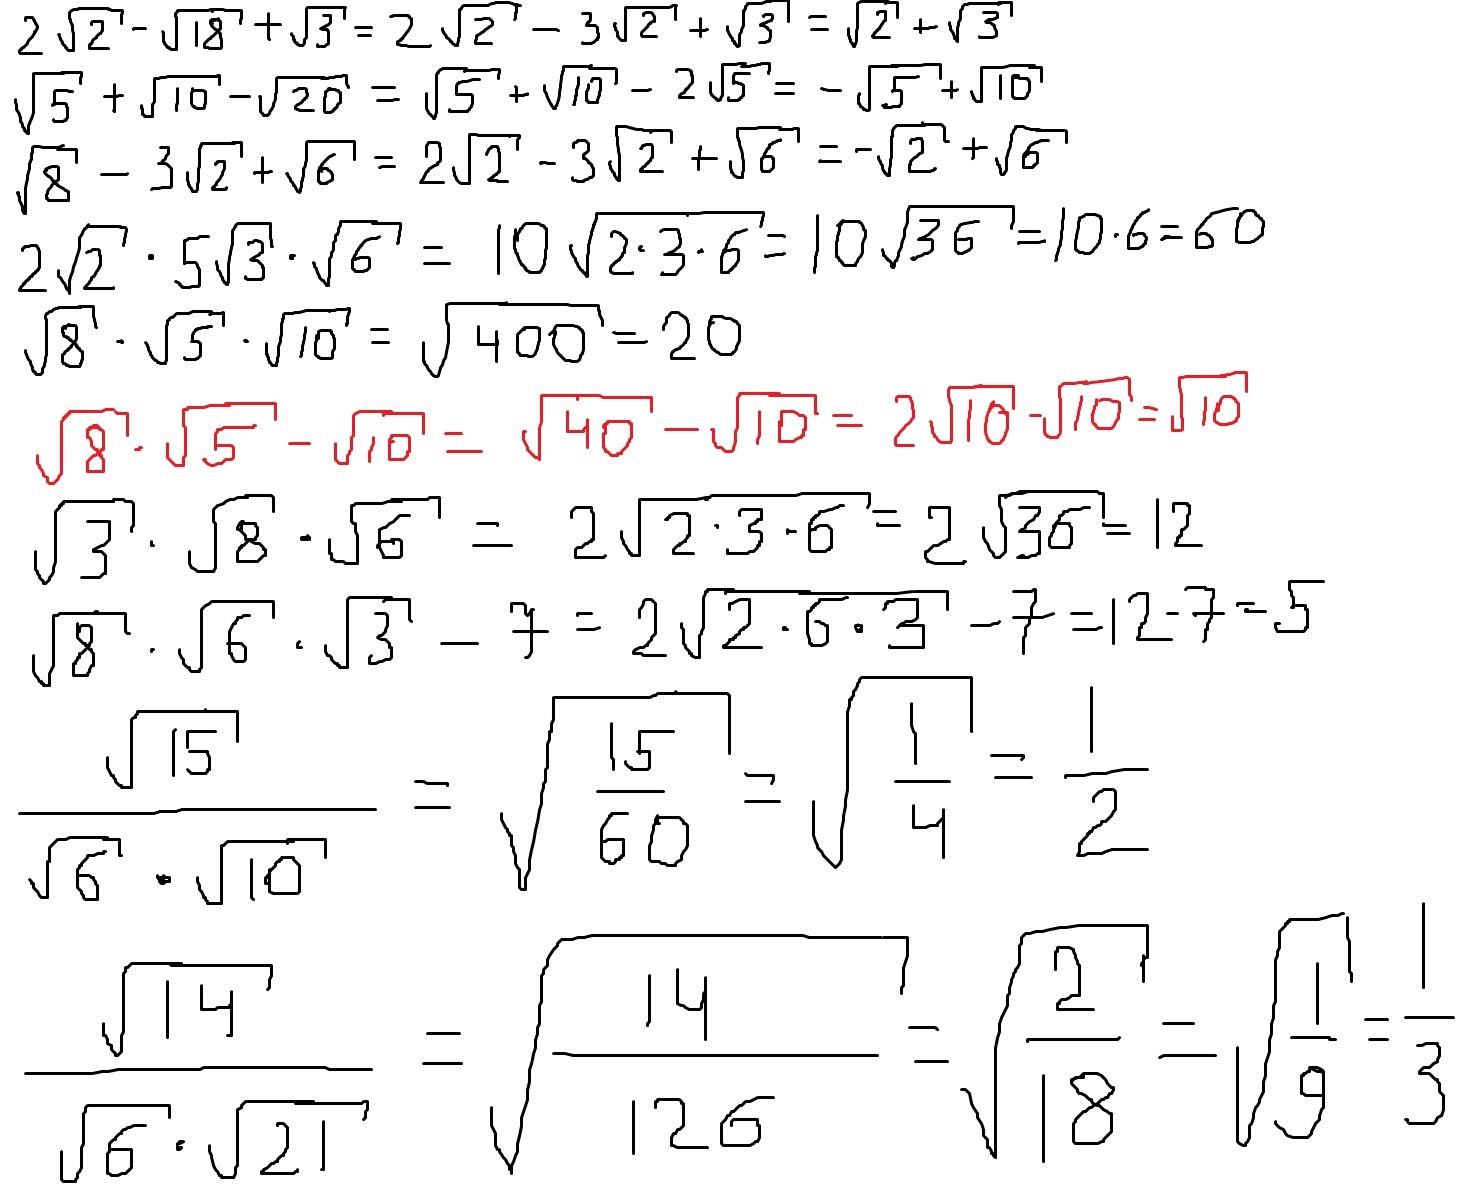 2√2 - √18 + √3 = 2√2 - 3√2 + √3 = √2 + √3
√5 + √10 - √20 = √5 + √10 - 2√5 = -√5 + √10
√8 - 3√2 + √6 = 2√2 - 3√2 + √6 = -√2 + √6
2√2 · 5√3 · √6 = 10√(2·3·6) = 10√36 = 10·6 = 60
√8 · √5 · √10 = √400 = 20
√8 · √5 - √10 = √40 - √10 = 2√10 - √10 = √10
√3 · √8 · √6 = 2√(2·3·6) = 2√36 = 12
√8 · √6 · √3 - 7 = 2√(2·6·3) - 7 = 12 - 7 = 5
√15/(√6 · √10) = √(15/60) = √(1/4) = 1/2
√14/(√6 · √21) = √(14/126) = √(2/18) = √(1/9) = 1/3